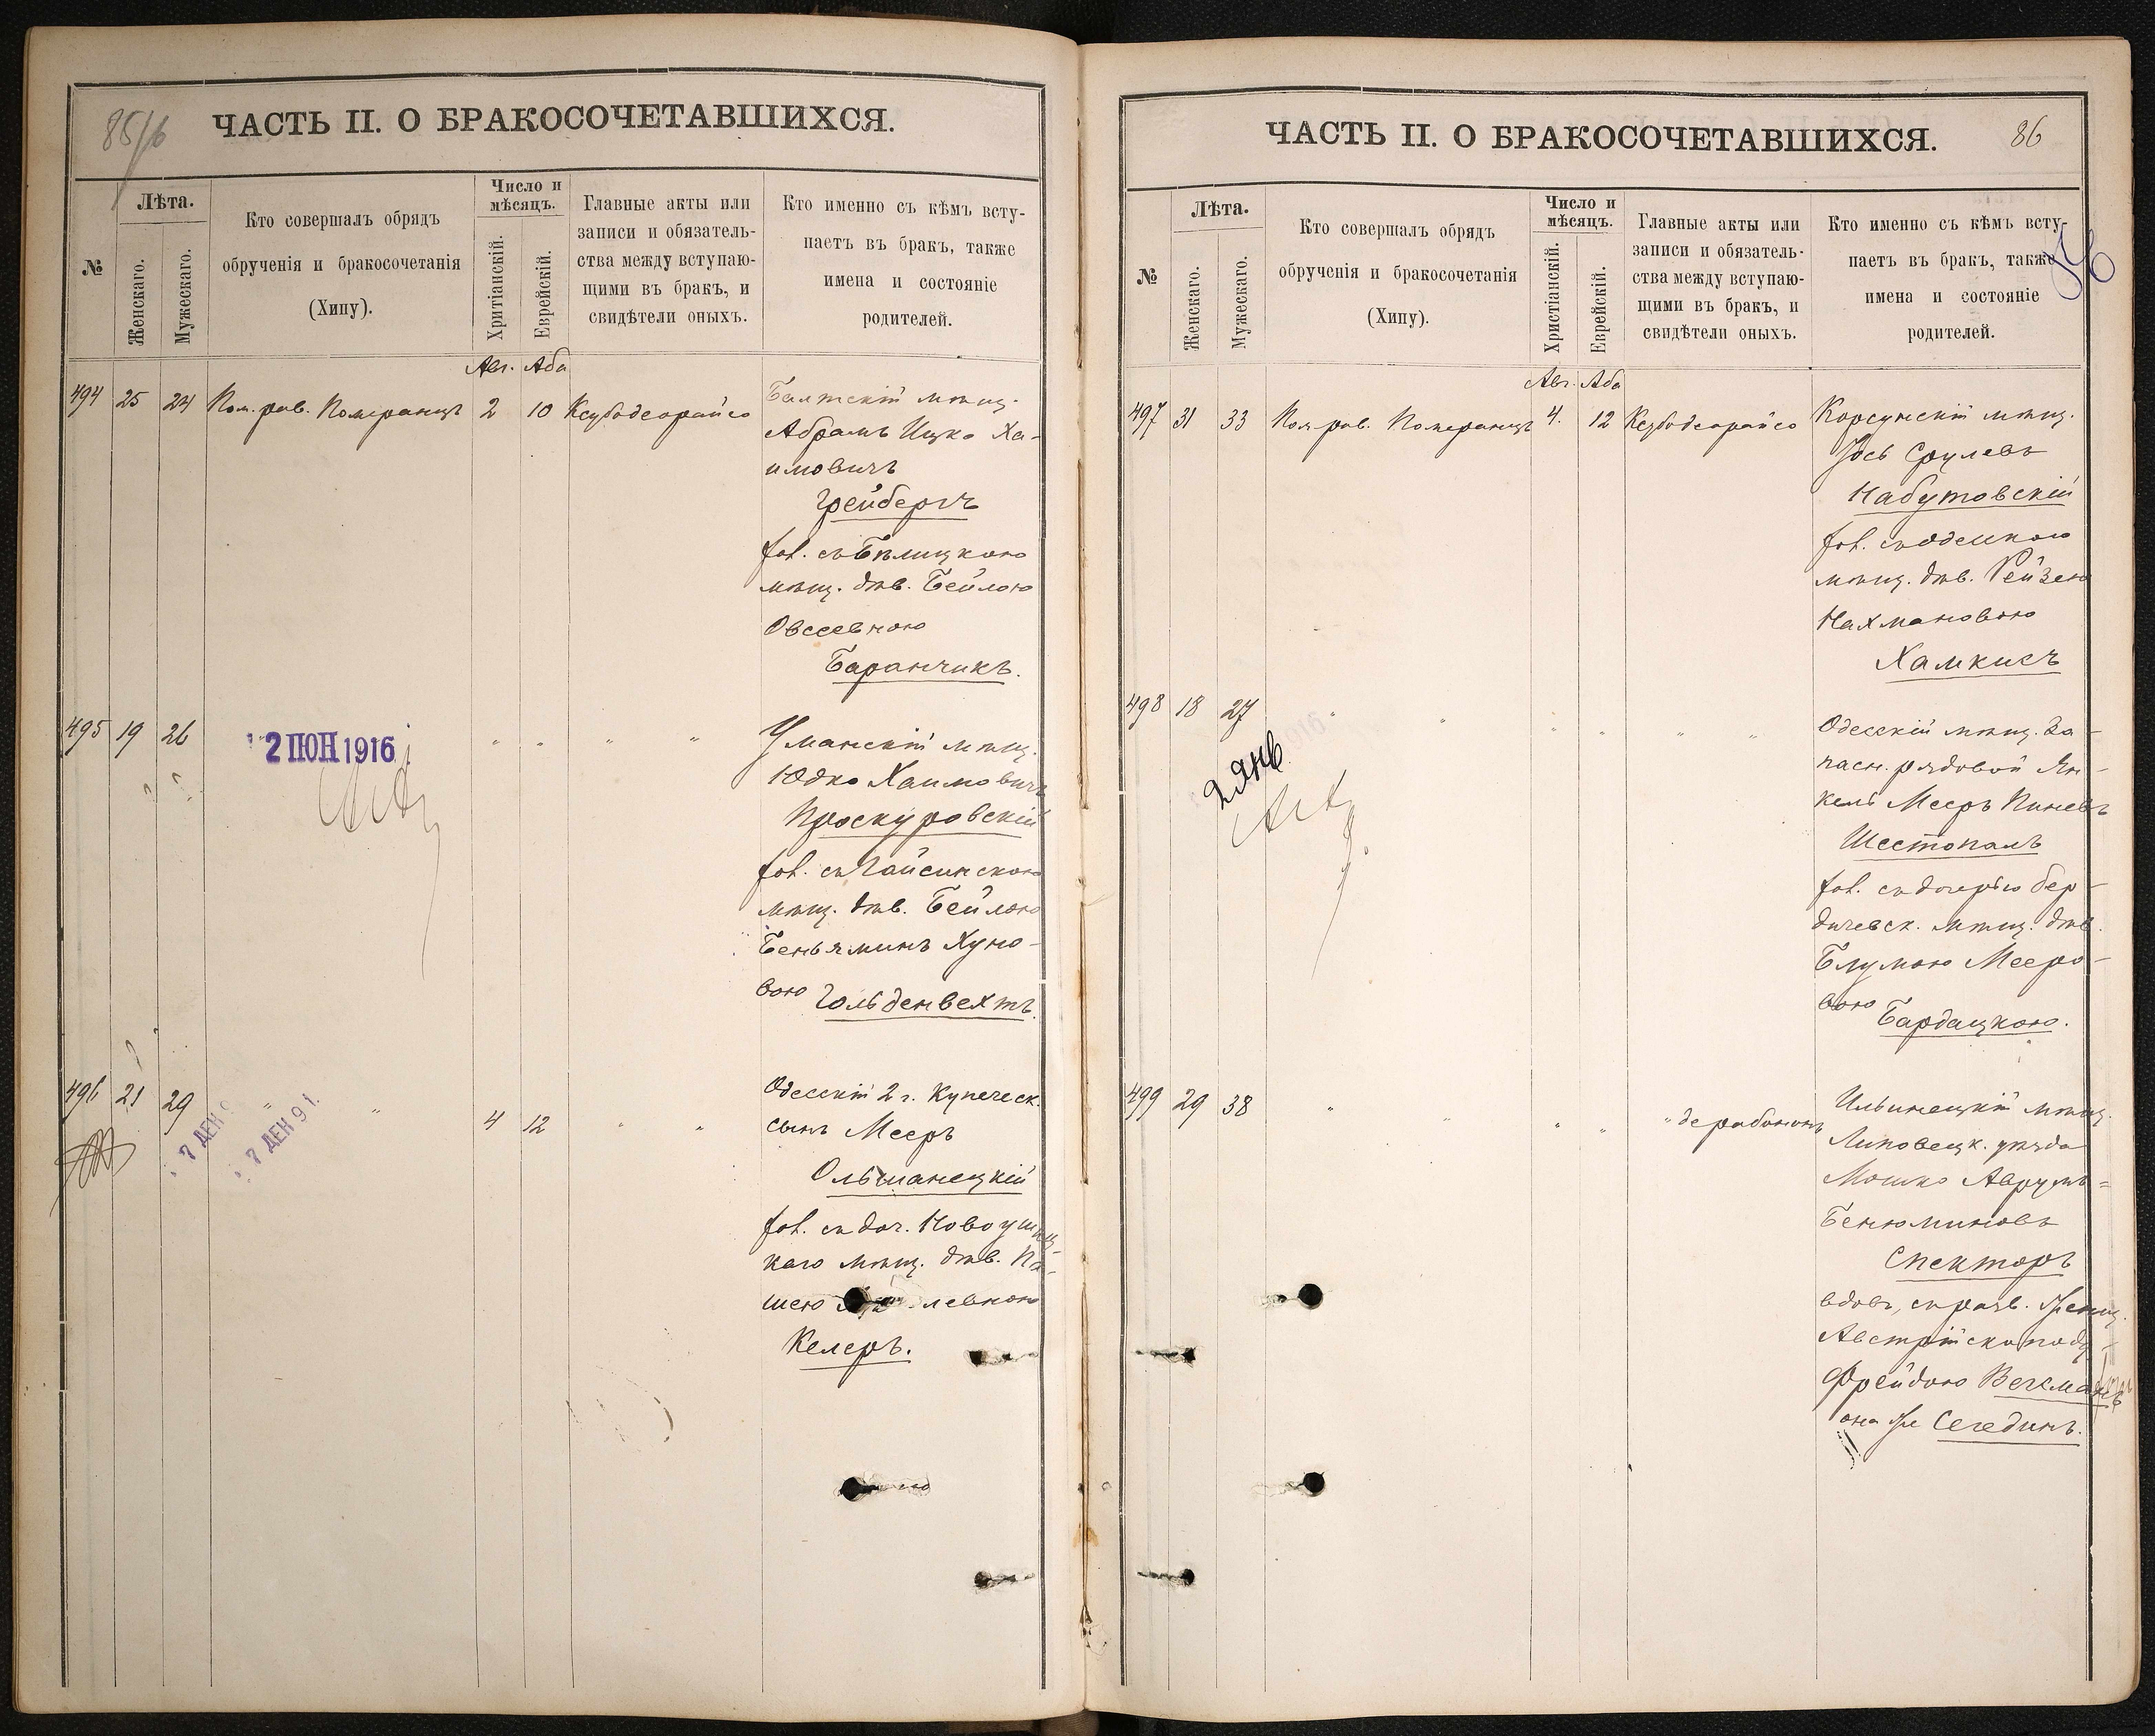 85/6
ЧАСТЬ II. О БРАКОСОЧЕТАВШИХСЯ.
№
Лѣта.
Женскаго.
Мужескаго.
Кто совершалъ обрядъ
обрученія и бракосочетанія
(Хипу).
Число и
мѣсяцъ.
Хритіанскій.
Еврейскій.
Главные акты или
записи и обязатель-
ства между вступаю-
щими въ бракъ, и
свидѣтели оныхъ.
Кто именно съ кѣмъ всту-
паетъ въ бракъ, также
имена и состояніе
родителей.
Авг. Аба
494 25 24 Пом. рав. Померанцъ 2 10 Ксубодеорайсо
Балтскій мѣщ.
Абрамъ Ицко Ха-
имовичъ
Грейбергъ
хол. съ Бѣлицкою
мѣщ. дѣв. Бейлою
Овсеевною
Баранчикъ.
495 19 26 " " " "
2 ІЮН 1916
Уманскій мѣщ.
Юдко Хаимовичъ
Проскуровскій
хол. съ Гайсинскою
мѣщ. дѣв. Бейлою
Беньяминъ Хуно-
вою Гольденвехтъ.
496 21 29 " " 4 12 " "
7 ДЕК 9
7 ДЕК 91.
Одесскій 2 г. Купеческ.
сынъ Мееръ
Ольшанецкій
хол. съ доч. Новоушиц-
каго мѣщ. дѣв. Па-
шею левною
Келеръ.
ЧАСТЬ II. О БРАКОСОЧЕТАВШИХСЯ.
86
86
№
Лѣта.
Женскаго.
Мужескаго.
Кто совершалъ обрядъ
обрученія и бракосочетанія
(Хипу).
Число и
мѣсяцъ.
Христіанскій.
Еврейскій.
Главные акты или
записи и обязатель-
ства между вступаю-
щими въ бракъ, и
свидѣтели оныхъ.
Кто именно съ кѣмъ всту-
паетъ въ бракъ, также
имена и состояніе
родителей.
Авг. Аба
497 31 33 Пом рав. Померанцъ 4. 12 Ксубодеорайсо
Корсунскій мѣщ.
Іось Срулевъ
Набутовскій
хол. съ Одесскою
мѣщ. дѣв. Рейзею
Нахмановою
Хамкисъ
498 18 27 " " " " " "
2 Янв.
Одесскій мѣщ. За-
пасн. рядовой Ян-
кель Мееръ Пиневъ
Шестопалъ
хол. съ дочерью бер-
дичевск. мѣщ. дѣв.
Блумою Мееро-
вою Бардацкою.
499 29 38 " " " " " дерабононъ
Ильинецкій мѣщ.
Липовецк. уѣзда
Мошко Аврумъ=
Бенюминовъ
Спекторъ
вдов., съ разв. женщ.
Австрійскоподд.
Фрейдою Векманъ
она же Сегединъ.